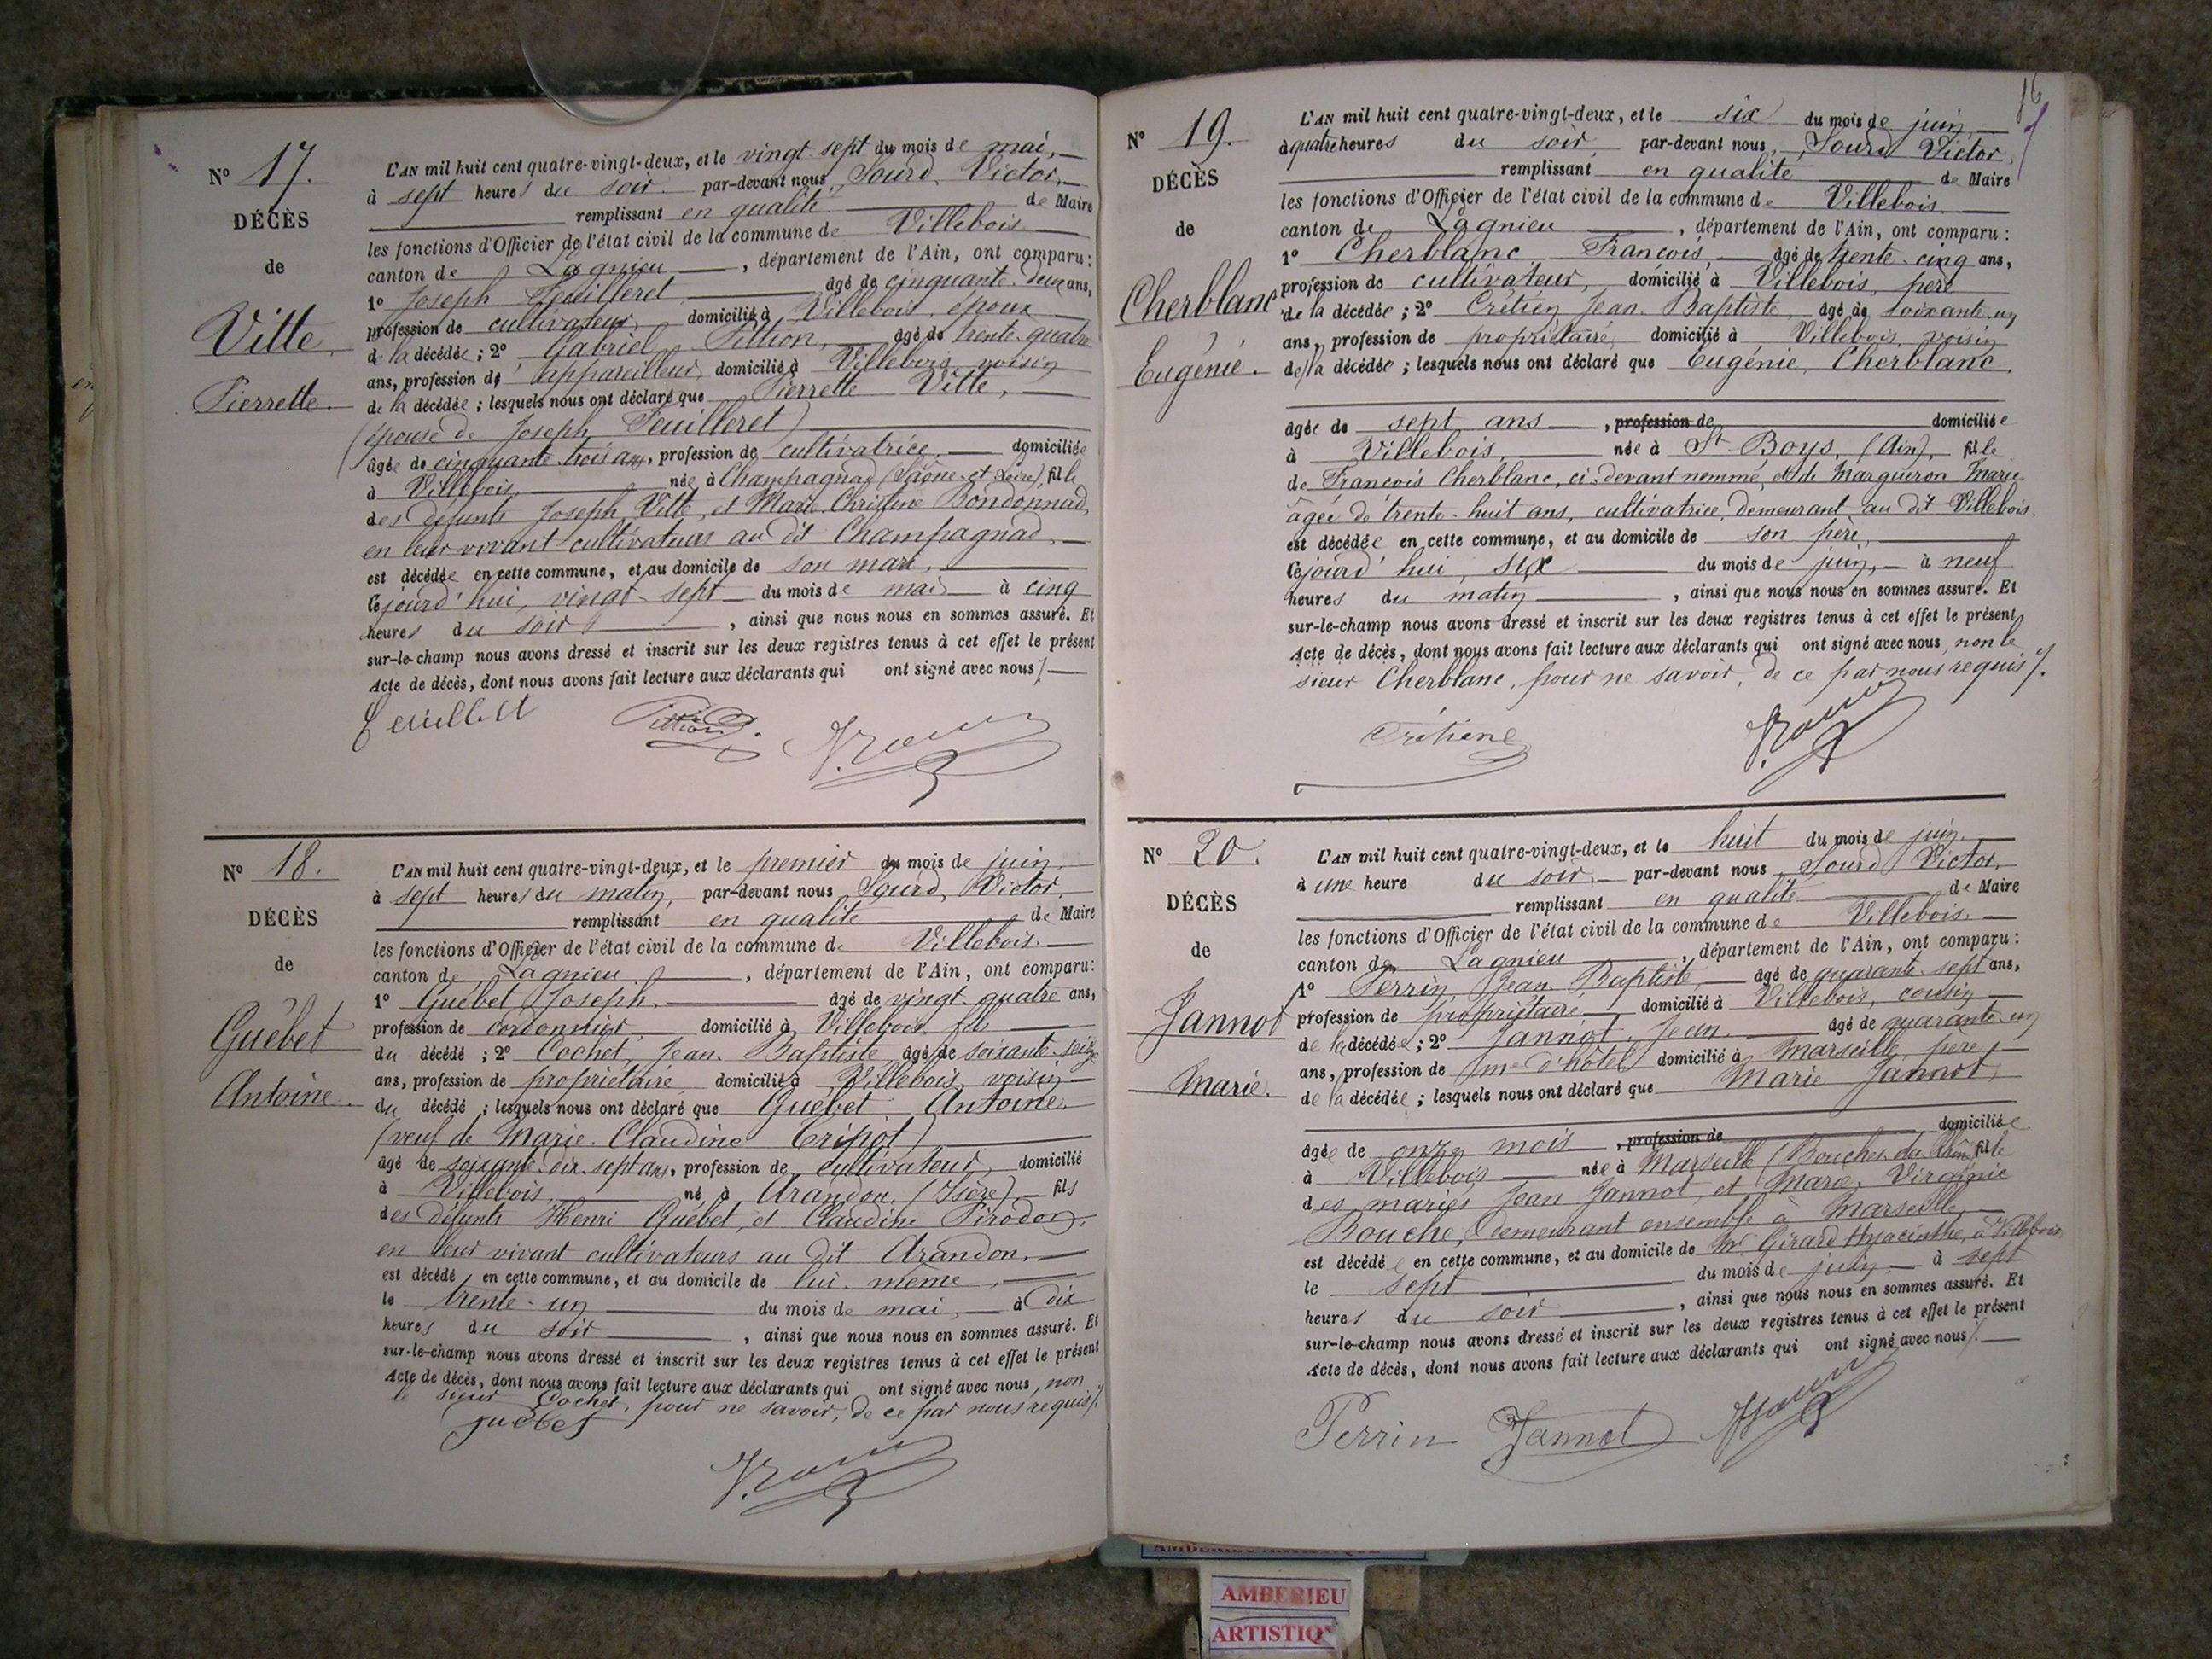 N° 17.
DÉCÈS
de
Vitte
Pierrette.
L'AN mil huit cent quatre-vingt-deux, et le vingt-sept du mois de mai,
à sept heures du soir par-devant nous, Sourd, Victor,
remplissant en qualité de Maire
les fonctions d'Officier de l'état civil de la commune de Villebois
canton de Lagnieu, département de l'Ain, ont comparu:
1° Joseph Feuilleret âgé de cinquante-deux ans,
profession de cultivateur, domicilié à Villebois, époux
de la décédée; 2° Gabriel Pittion, âgé de trente-quatre
ans, profession d'appareilleur, domicilié à Villebois, voisin
de la décédée; lesquels nous ont déclaré que Pierrette Vitte,
(épouse de Joseph Feuilleret)
âgée de cinquante-trois ans, profession de cultivatrice, domiciliée
à Villebois, née à Champagnad (Saône-et-Loire), fille
des défunts Joseph Vitte, et Marie Christine Bondonnad,
en leur vivant cultivateurs au dit Champagnad,
est décédée en cette commune, et au domicile de son mari,
Cejourd'hui, vingt-sept du mois de mai à cinq
heures du soir, ainsi que nous nous en sommes assuré. Et
sur-le-champ nous avons dressé et inscrit sur les deux registres tenus à cet effet le présent
Acte de décès, dont nous avons fait lecture aux déclarants qui ont signé avec nous
Feuilleret Pittion
N° 18.
DÉCÈS
de
Guébet
Antoine.
L'AN mil huit cent quatre-vingt-deux, et le premier du mois de juin,
à sept heures du matin, par-devant nous Sourd, Victor,
remplissant en qualité de Maire
les fonctions d'Officier de l'état civil de la commune de Villebois.
canton de Lagnieu, département de l'Ain, ont comparu:
1° Guébet Joseph, âgé de vingt-quatre ans,
profession de cordonnier domicilié à Villebois, fils
du décédé; 2° Cochet, Jean-Baptiste âgé de soixante-seize
ans, profession de propriétaire domicilié à Villebois, voisin
du décédé; lesquels nous ont déclaré que Guébet Antoine,
(veuf de Marie-Claudine Tripot)
âgé de soixante-dix-sept ans, profession de cultivateur, domicilié
à Villebois, né à Arandon, (Isère), fils
des défunts Henri Guébet, et Claudine Pirodon,
en leur vivant cultivateurs au dit Arandon,
est décédé en cette commune, et au domicile de lui-même,
le trente-un du mois de mai, à dix
heures du soir, ainsi que nous nous en sommes assuré. Et
sur-le-champ nous avons dressé et inscrit sur les deux registres tenus à cet effet le présent
Acte de décès, dont nous avons fait lecture aux déclarants qui ont signé avec nous, non
le sieur Cochet, pour ne savoir, de ce par nous requis
guébet
16
N° 19.
DÉCÈS
de
Cherblanc
Eugénie.
L'AN mil huit cent quatre-vingt-deux, et le six du mois de juin,
à quatre heures du soir, par-devant nous, Sourd Victor,
remplissant en qualité de Maire
les fonctions d'Officier de l'état civil de la commune de Villebois
canton de Lagnieu, département de l'Ain, ont comparu:
1° Cherblanc François, âgé de trente-cinq ans,
profession de cultivateur, domicilié à Villebois, père
de la décédée; 2° Crétien Jean-Baptiste, âgé de soixante-un
ans, profession de propriétaire, domicilié à Villebois, voisin
de la décédée; lesquels nous ont déclaré que Eugénie Cherblanc.
âgée de sept ans, profession de domiciliée
à Villebois, née à St Boys, (Ain), fille
de François Cherblanc, ci-devant nommé, et de Marguéron Marie
âgée de trente-huit ans, cultivatrice, demeurant au dit Villebois.
est décédée en cette commune, et au domicile de son père,
Cejourd'hui, six du mois de juin, à neuf
heures du matin, ainsi que nous nous en sommes assuré. Et
sur-le-champ nous avons dressé et inscrit sur les deux registres tenus à cet effet le présent
Acte de décès, dont nous avons fait lecture aux déclarants qui ont signé avec nous, non le
sieur Cherblanc, pour ne savoir, de ce par nous requis
N° 20.
DÉCÈS
de
Jannot
Marie.
L'AN mil huit cent quatre-vingt-deux, et le huit du mois de juin,
à une heure du soir, par-devant nous Sourd Victor,
remplissant en qualité de Maire
les fonctions d'Officier de l'état civil de la commune de Villebois.
canton de Lagnieu, département de l'Ain, ont comparu:
1° Perrin Jean Baptiste, âgé de quarante-sept ans,
profession de propriétaire domicilié à Villebois, cousin
de la décédée; 2° Jannot, Jean âgé de quarante-un
ans, profession de me d'hôtel domicilié à Marseille, père
de la décédée; lesquels nous ont déclaré que Marie Jannot,
âgée de onze mois, profession de domiciliée
à Villebois née à Marseille (Bouches-du-Rhône) fille
des mariés Jean Jannot, et Marie Virginie
Bouche, demeurant ensemble à Marseille,
est décédée en cette commune, et au domicile de Mr Girard Hyacinthe, à Villebois,
le sept du mois de juin à sept
heures du soir, ainsi que nous nous en sommes assuré. Et
sur-le-champ nous avons dressé et inscrit sur les deux registres tenus à cet effet le présent
Acte de décès, dont nous avons fait lecture aux déclarants qui ont signé avec nous
Perrin Jannot
AMBERIEU
ARTISTIQ